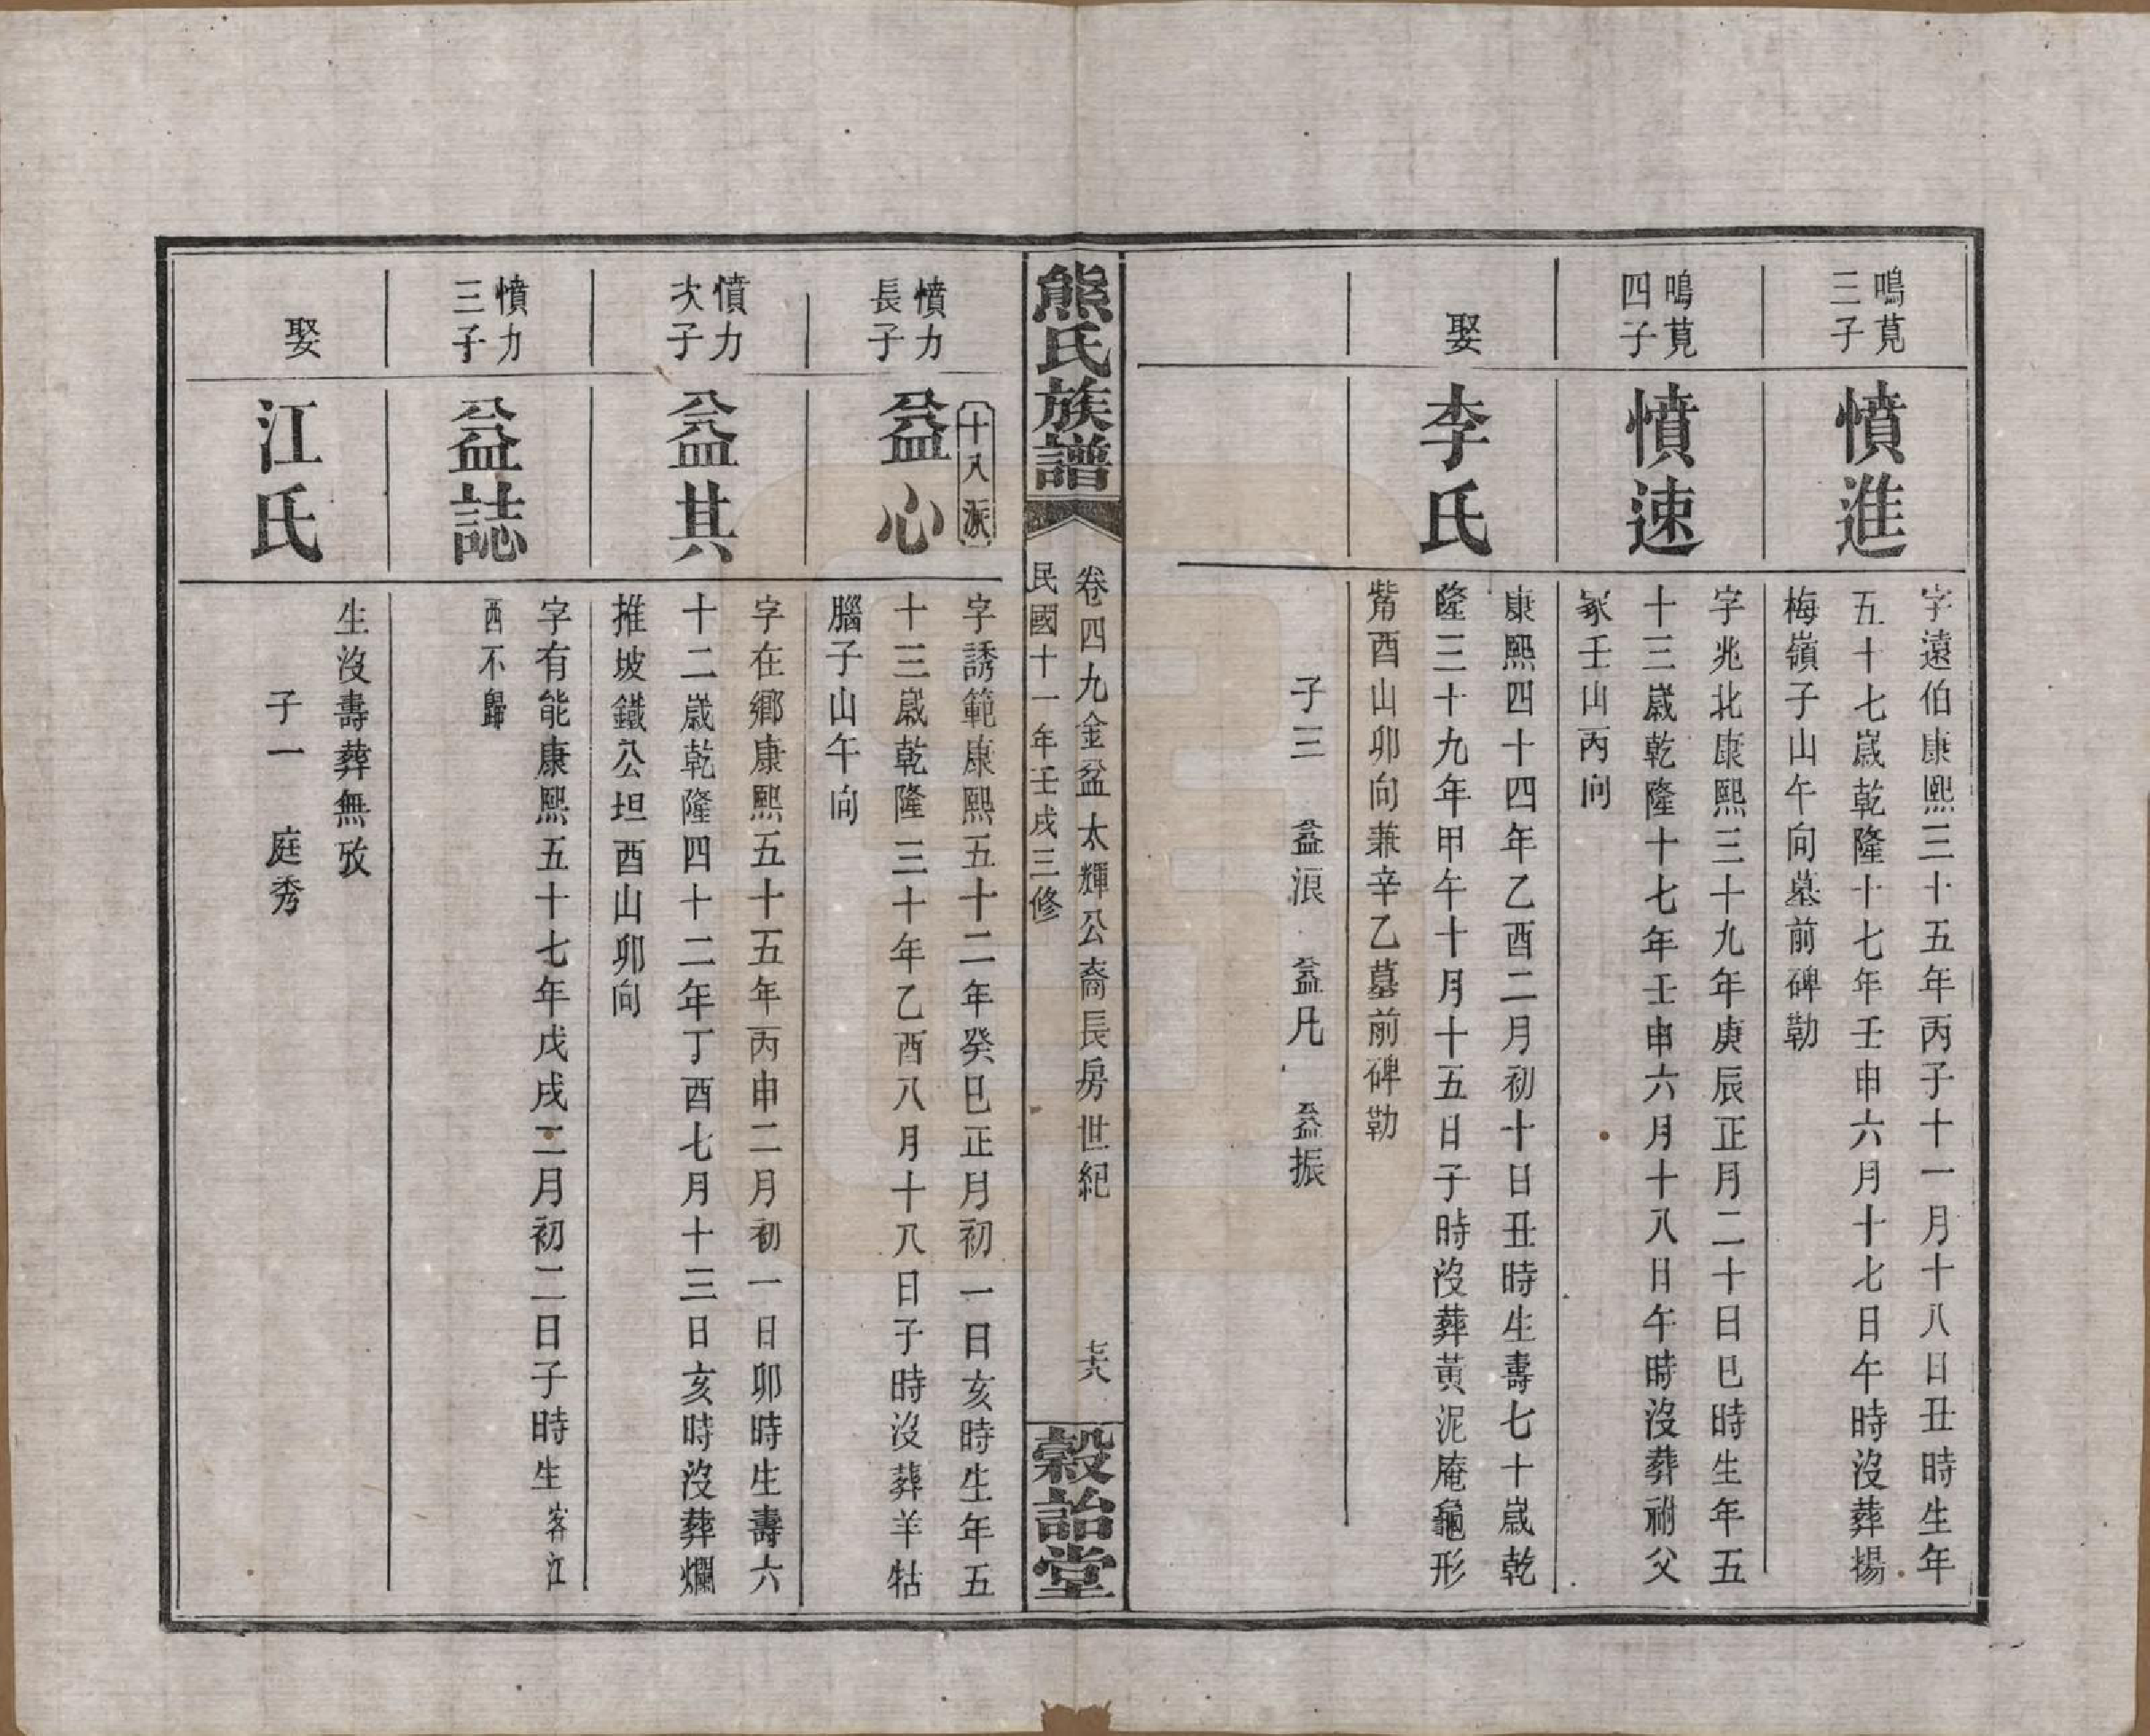 鳴莧
三子
憤進
字遠伯康熙三十五年丙子十一月十八日丑時生年
五十七歲乾隆十七年壬申六月十七日午時沒葬揚
梅嶺子山午向墓前碑勒
鳴莧
四子
憤速
字兆北康熙三十九年庚辰正月二十日巳時生年五
十三歲乾隆十七年壬申六月十八日午時沒葬祔父
冢壬山丙向
娶
李氏
康熙四十四年乙酉二月初十日丑時生壽七十歲乾
隆三十九年甲午十月十五日子時沒葬黃泥庵龜形
觜酉山卯向兼辛乙墓前碑勒
子三 益浪 益凡 益振
熊氏族譜
卷四九金盆太輝公裔長房世紀
民國十一年壬戌三修
穀詒堂
十八派
憤力
長子
益心
字誘範康熙五十二年癸巳正月初一日亥時生年五
十三歲乾隆三十年乙酉八月十八日子時沒葬羊牯
腦子山午向
憤力
次子
益其
字在鄉康熙五十五年丙申二月初一日卯時生壽六
十二歲乾隆四十二年丁酉七月十三日亥時沒葬爛
推坡鐵公坦酉山卯向
憤力
三子
益誌
字有能康熙五十七年戊戌二月初二日子時生客江
西不歸
娶
江氏
生沒壽葬無攷
子一 庭秀